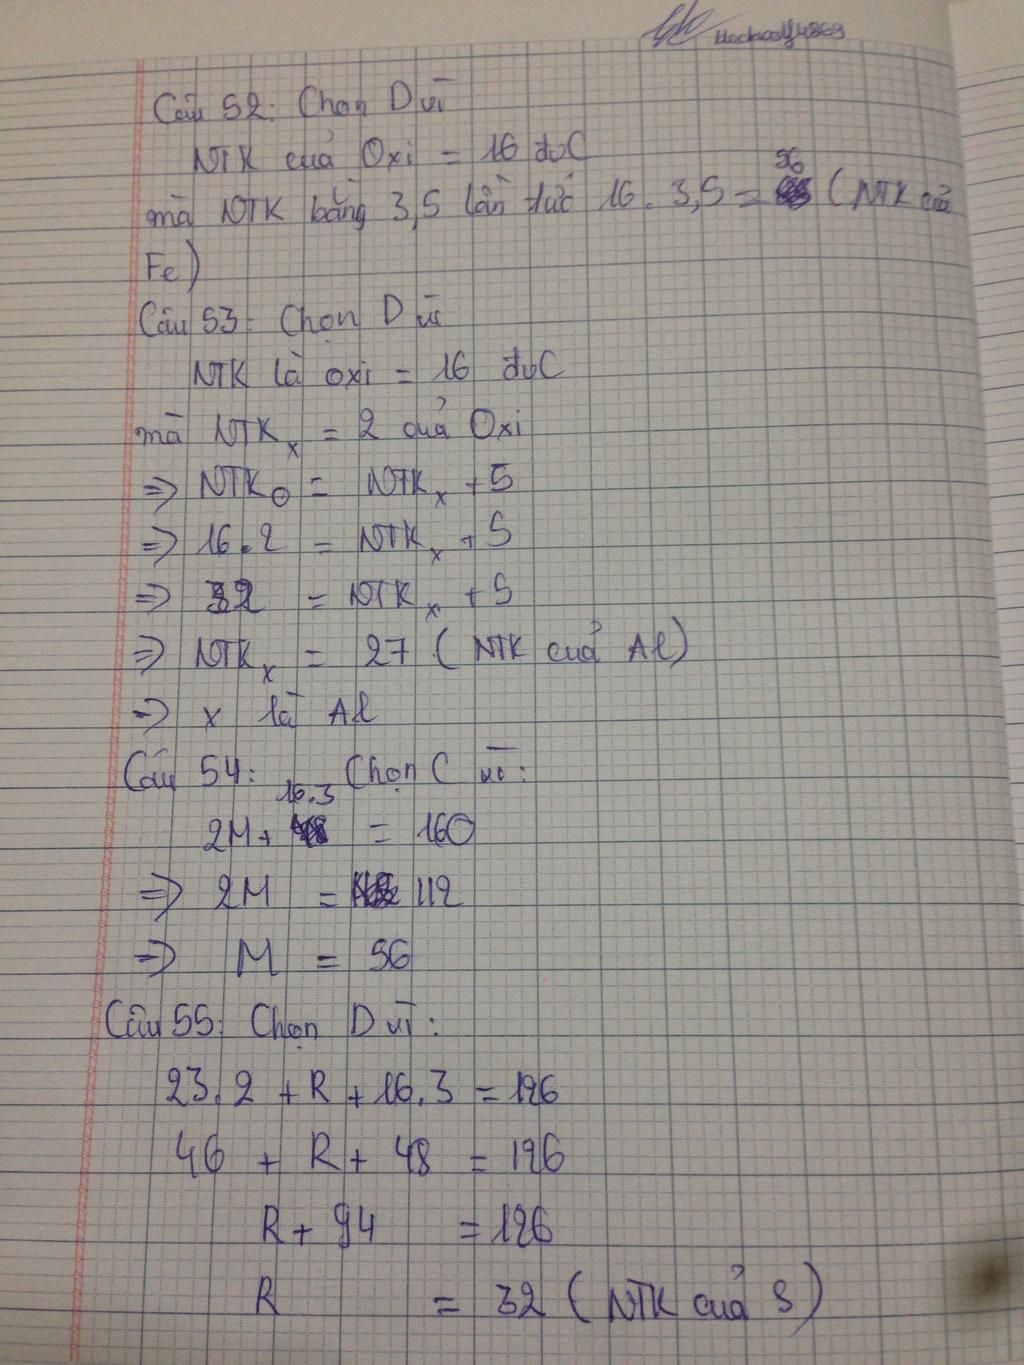 Câu 52: Chọn D vì
NTK của Oxi = 16 đvC
mà NTK bằng 3,5 lần tức 16 . 3,5 = 56 (NTK của
Fe)
Câu 53: Chọn D vì
NTK là oxi = 16 đvC
mà NTKx = 2 của Oxi
=> NTKO = NTKx + 5
=> 16.2 = NTKx + 5
=> 32 = NTKx + 5
=> NTKx = 27 (NTK của Al)
=> x là Al
Câu 54: Chọn C vì:
2M + 16.3 = 160
=> 2M = 112
=> M = 56
Câu 55: Chọn D vì:
23.2 + R + 16.3 = 126
46 + R + 48 = 126
R + 94 = 126
R = 32 (NTK của S)